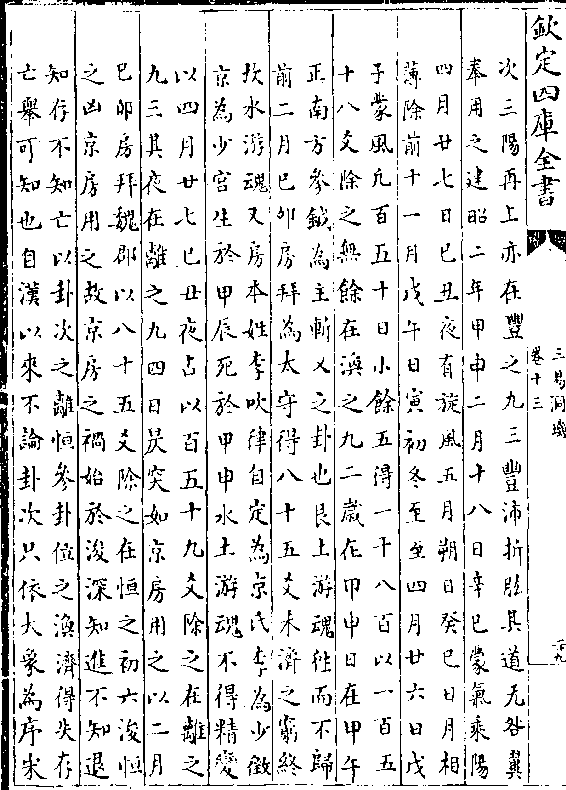 欽定四庫全書
三易洞璣
卷十三
次三陽再上亦在豐之九三豐沛折肱其道无咎翼
奉用之建昭二年甲申二月十八日辛巳蒙氣乘陽
四月廿七日巳丑夜有旋風五月朔日癸巳日月相
薄除前十一月戊午日寅初冬至至四月廿六日戊
子蒙風凡百五十日小餘五得一千八百以一百五
十八爻除之無餘在渙之九二歲在甲申日在甲午
正南方參鉞為主斬乂之卦也艮上游魂徃而不歸
前二月巳卯房拜為太守得八十五爻未濟之窮終
坎水游魂又房本姓李吹律自定為京氏李為少徵
京為少宫生於甲辰死於甲申水土游魂不得精變
以四月廿七巳丑夜占以百五十九爻除之在離之
九三其夜在離之九四日焚突如京房用之以二月
巳卯房拜魏郡以八十五爻除之在恒之初六浚恒
之凶京房用之故京房之禍始於浚深知進不知退
知存不知亡以卦次之離恒參卦位之渙濟得失存
亡舉可知也自漢以來不論卦次只依大象為序求